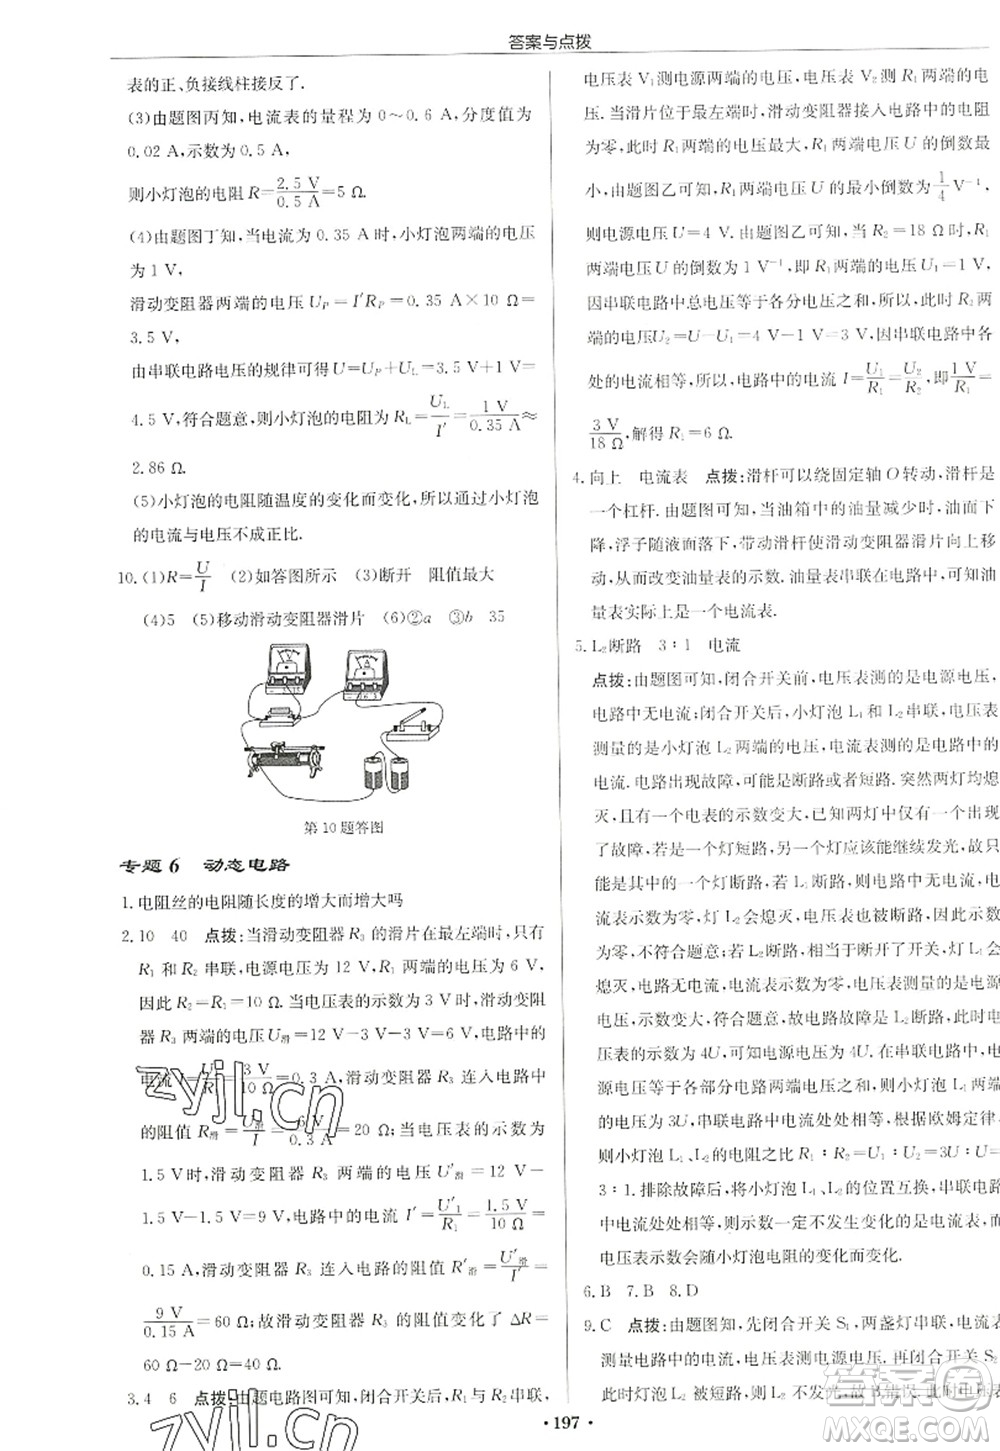 答案与点拨
表的正、负接线柱接反了.
(3)由题图丙知，电流表的量程为 0～0.6 A，分度值为
0.02 A，示数为 0.5 A，
则小灯泡的电阻 R=2.5 V/0.5 A=5 Ω.
(4)由题图丁知，当电流为 0.35 A 时，小灯泡两端的电压
为 1 V，
滑动变阻器两端的电压 U_P=I′R_P=0.35 A×10 Ω=
3.5 V，
由串联电路电压的规律可得 U=U_P+U_L=3.5 V+1 V=
4.5 V，符合题意，则小灯泡的电阻为 R_L=U_L/I′=1 V/0.35 A≈
2.86 Ω.
(5)小灯泡的电阻随温度的变化而变化，所以通过小灯泡
的电流与电压不成正比.
10.(1)R=U/I (2)如答图所示 (3)断开 阻值最大
(4)5 (5)移动滑动变阻器滑片 (6)②a ③b 35
第 10 题答图
专题 6 动态电路
1.电阻丝的电阻随长度的增大而增大吗
2.10 40 点拨:当滑动变阻器 R₃ 的滑片在最左端时，只有
R₁ 和 R₂ 串联，电源电压为 12 V，R₁ 两端的电压为 6 V，
因此 R₁=R₂=10 Ω.当电压表的示数为 3 V 时，滑动变阻
器 R₃ 两端的电压 U滑=12 V-3 V-3 V=6 V，电路中的
电流 I=U₁/R₁=3 V/10 Ω=0.3 A，滑动变阻器 R₃ 连入电路中
的阻值 R滑=U滑/I=6 V/0.3 A=20 Ω;当电压表的示数为
1.5 V 时，滑动变阻器 R₃ 两端的电压 U′滑=12 V-
1.5 V-1.5 V=9 V，电路中的电流 I′=U′₁/R₁=1.5 V/10 Ω=
0.15 A，滑动变阻器 R₃ 连入电路中的阻值 R′滑=U′滑/I′=
9 V/0.15 A=60 Ω;故滑动变阻器 R₃ 的阻值变化了 ΔR=
60 Ω-20 Ω=40 Ω.
3.4 6 点拨:由题电路图可知，闭合开关，R₁ 与 R₂ 串联，
电压表 V₁ 测电源两端的电压，电压表 V₂ 测 R₁ 两端的电
压.当滑片位于最左端时，滑动变阻器接入电路中的电阻
为零，此时 R₁ 两端的电压最大，R₁ 两端电压 U 的倒数最
小，由题图乙可知，R₁ 两端电压 U 的最小倒数为 1/4 V⁻¹，
则电源电压 U=4 V.由题图乙可知，当 R₂=18 Ω 时，R₁
两端电压 U 的倒数为 1 V⁻¹，此时 R₁ 两端电压 U₁=1 V，
因串联电路中总电压等于各分电压之和，所以，此时 R₂ 两
端的电压U₂=U-U₁=4 V-1 V=3 V，因串联电路中各
处的电流相等，所以，电路中的电流 I=U₁/R₁=U₂/R₂，即1 V/R₁=
3 V/18 Ω，解得 R₁=6 Ω.
4.向上 电流表 点拨:滑杆可以绕固定轴 O 转动，滑杆是
一个杠杆.由题图可知，当油箱中的油量减少时，油面下
降，浮子随液面落下，带动滑杆使滑动变阻器滑片向上移
动，从而改变油量表的示数.油量表串联在电路中，知道油
量表实际上是一个电流表.
5.L₂断路 3∶1 电流
点拨:由题图可知，闭合开关前，电压表测的是电源电压，
电路中无电流;闭合开关后，小灯泡 L₁ 和 L₂ 串联，电压表
测量的是小灯泡 L₂ 两端的电压，电流表测量的是电路中
电流.电路出现故障，可能是断路或者短路.突然两灯均熄
灭，一个电表的示数变大，已知两灯中仅有一个灯出现
了故障，若一个灯短路，另一个灯应该能继续发光，因此只
能是其中的一个灯断路，若 L₁ 断路，则电路中无电流，电
流表示数为零，灯 L₂ 会熄灭，但电压表示数为零，因此示数
为零，不符合题意;若 L₂ 断路，相当于断开了开关，灯 L₁
熄灭，电路无电流，电流表示数为零，电压表测量的是电源
电压，示数变大，符合题意，故电路故障为 L₂ 断路.此时电
压表的示数为 4U，可知电源电压为 4U.在串联电路中，电
源电压等于各部分电路两端电压之和，则小灯泡 L₁ 两端
电压为 3U，串联电路中电流处处相等，根据欧姆定律可知，
则小灯泡 L₁、L₂ 的电阻之比 R₁∶R₂=U₁∶U₂=3U∶U=
3∶1.排除故障后，将小灯泡 L₁、L₂ 的位置互换，串联电路
中电流处处相等，则示数一定不发生变化的是电流表，而
电压表示数会随小灯泡电阻的变化而变化.
6.B 7.B 8.D
9.C 点拨:由题图知，先闭合开关 S₁，两盏灯串联，电流表
测量电路中的电流，电压表测量电源电压.再闭合开关 S₂，
此时灯泡 L₁ 被短路，L₁ 不发光，故B错误，此时电流表
• 197 •
zyjl.cn
zyjl.cn
答案圈
MXQE.COM